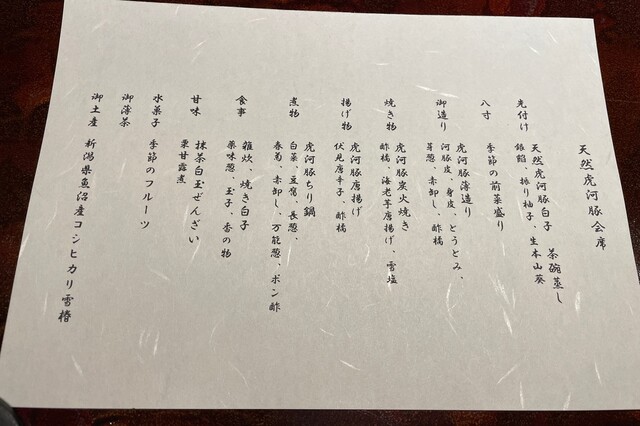 天然虎河豚会席
先付け 天然虎河豚白子 茶碗蒸し
銀餡、振り柚子、生本山葵
八寸 季節の前菜盛り
御造り 虎河豚薄造り
河豚皮、身皮、とうとみ、
芽葱、赤卸し、酢橘
焼き物 虎河豚炭火焼き
酢橘、海老芋唐揚げ、雪塩
揚げ物 虎河豚唐揚げ
伏見唐辛子、酢橘
煮物 虎河豚ちり鍋
白菜、豆腐、長葱、
春菊、赤卸し、万能葱、ポン酢
食事 雑炊、焼き白子
薬味葱、玉子、香の物
甘味 抹茶白玉ぜんざい
栗甘露煮
水菓子 季節のフルーツ
御薄茶
御土産 新潟県魚沼産コシヒカリ雪椿